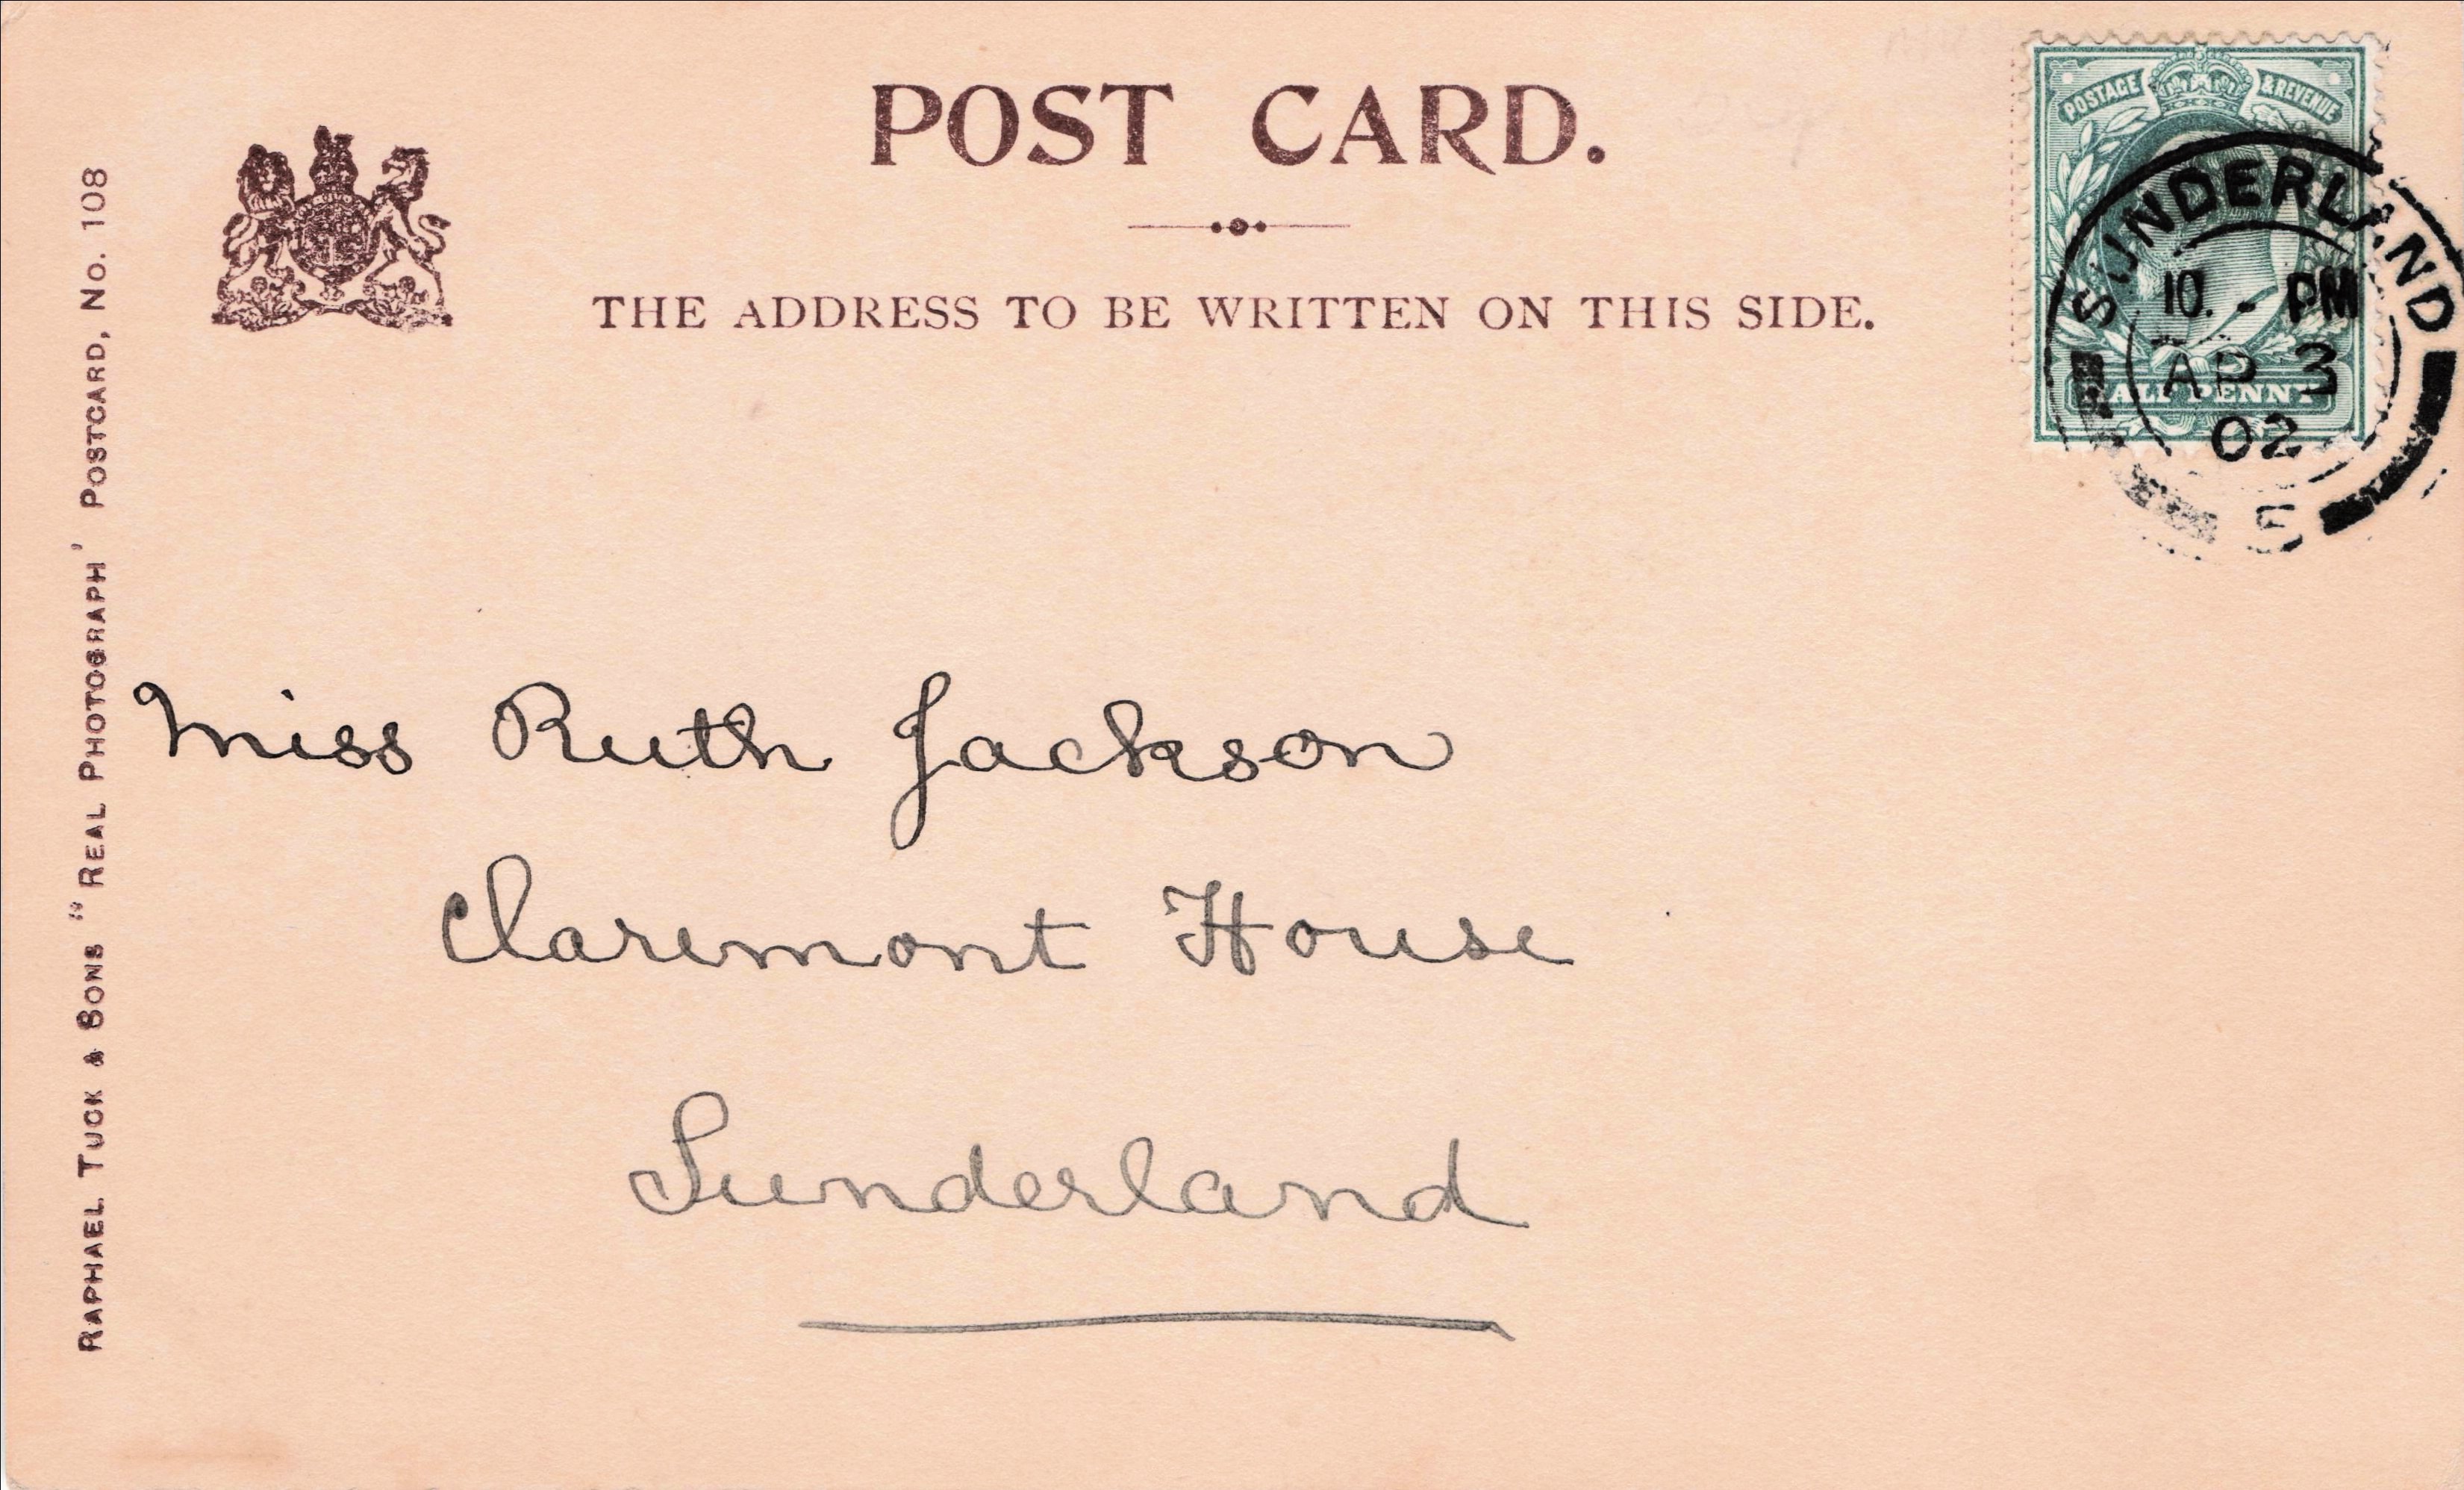 POST CARD.
THE ADDRESS TO BE WRITTEN ON THIS SIDE.
RAPHAEL TUCK & SONS "REAL PHOTOGRAPH' POSTCARD, No. 108
POSTAGE & REVENUE
HALF PENNY
SUNDERLAND
10. - PM
AP 3
02
5
Miss Ruth Jackson
Claremont House
Sunderland